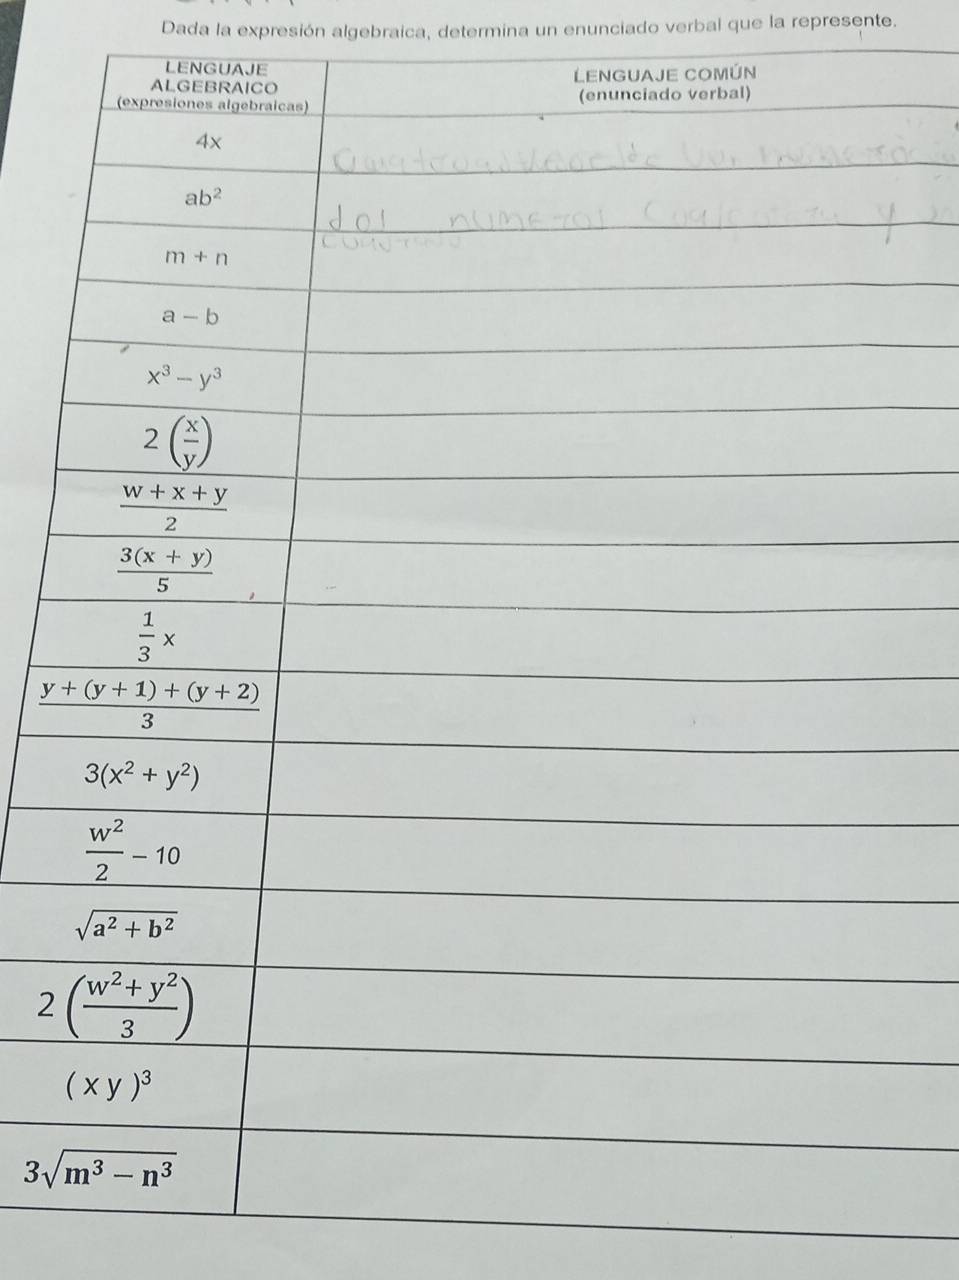 Dada la expresión algebraica, determina un enunciado verbal que la represente.
LENGUAJE
ALGEBRAICO
(expresiones algebraicas)
LENGUAJE COMÚN
(enunciado verbal)
4x
ab²
dos numeros y
m + n
a − b
x³ − y³
2 (x/y)
w + x + y
2
3(x + y)
5
1/3 x
y + (y + 1) + (y + 2)
3
3(x² + y²)
w²/2 − 10
√a² + b²
2 (w² + y²/3)
( x y )³
3√m³ − n³